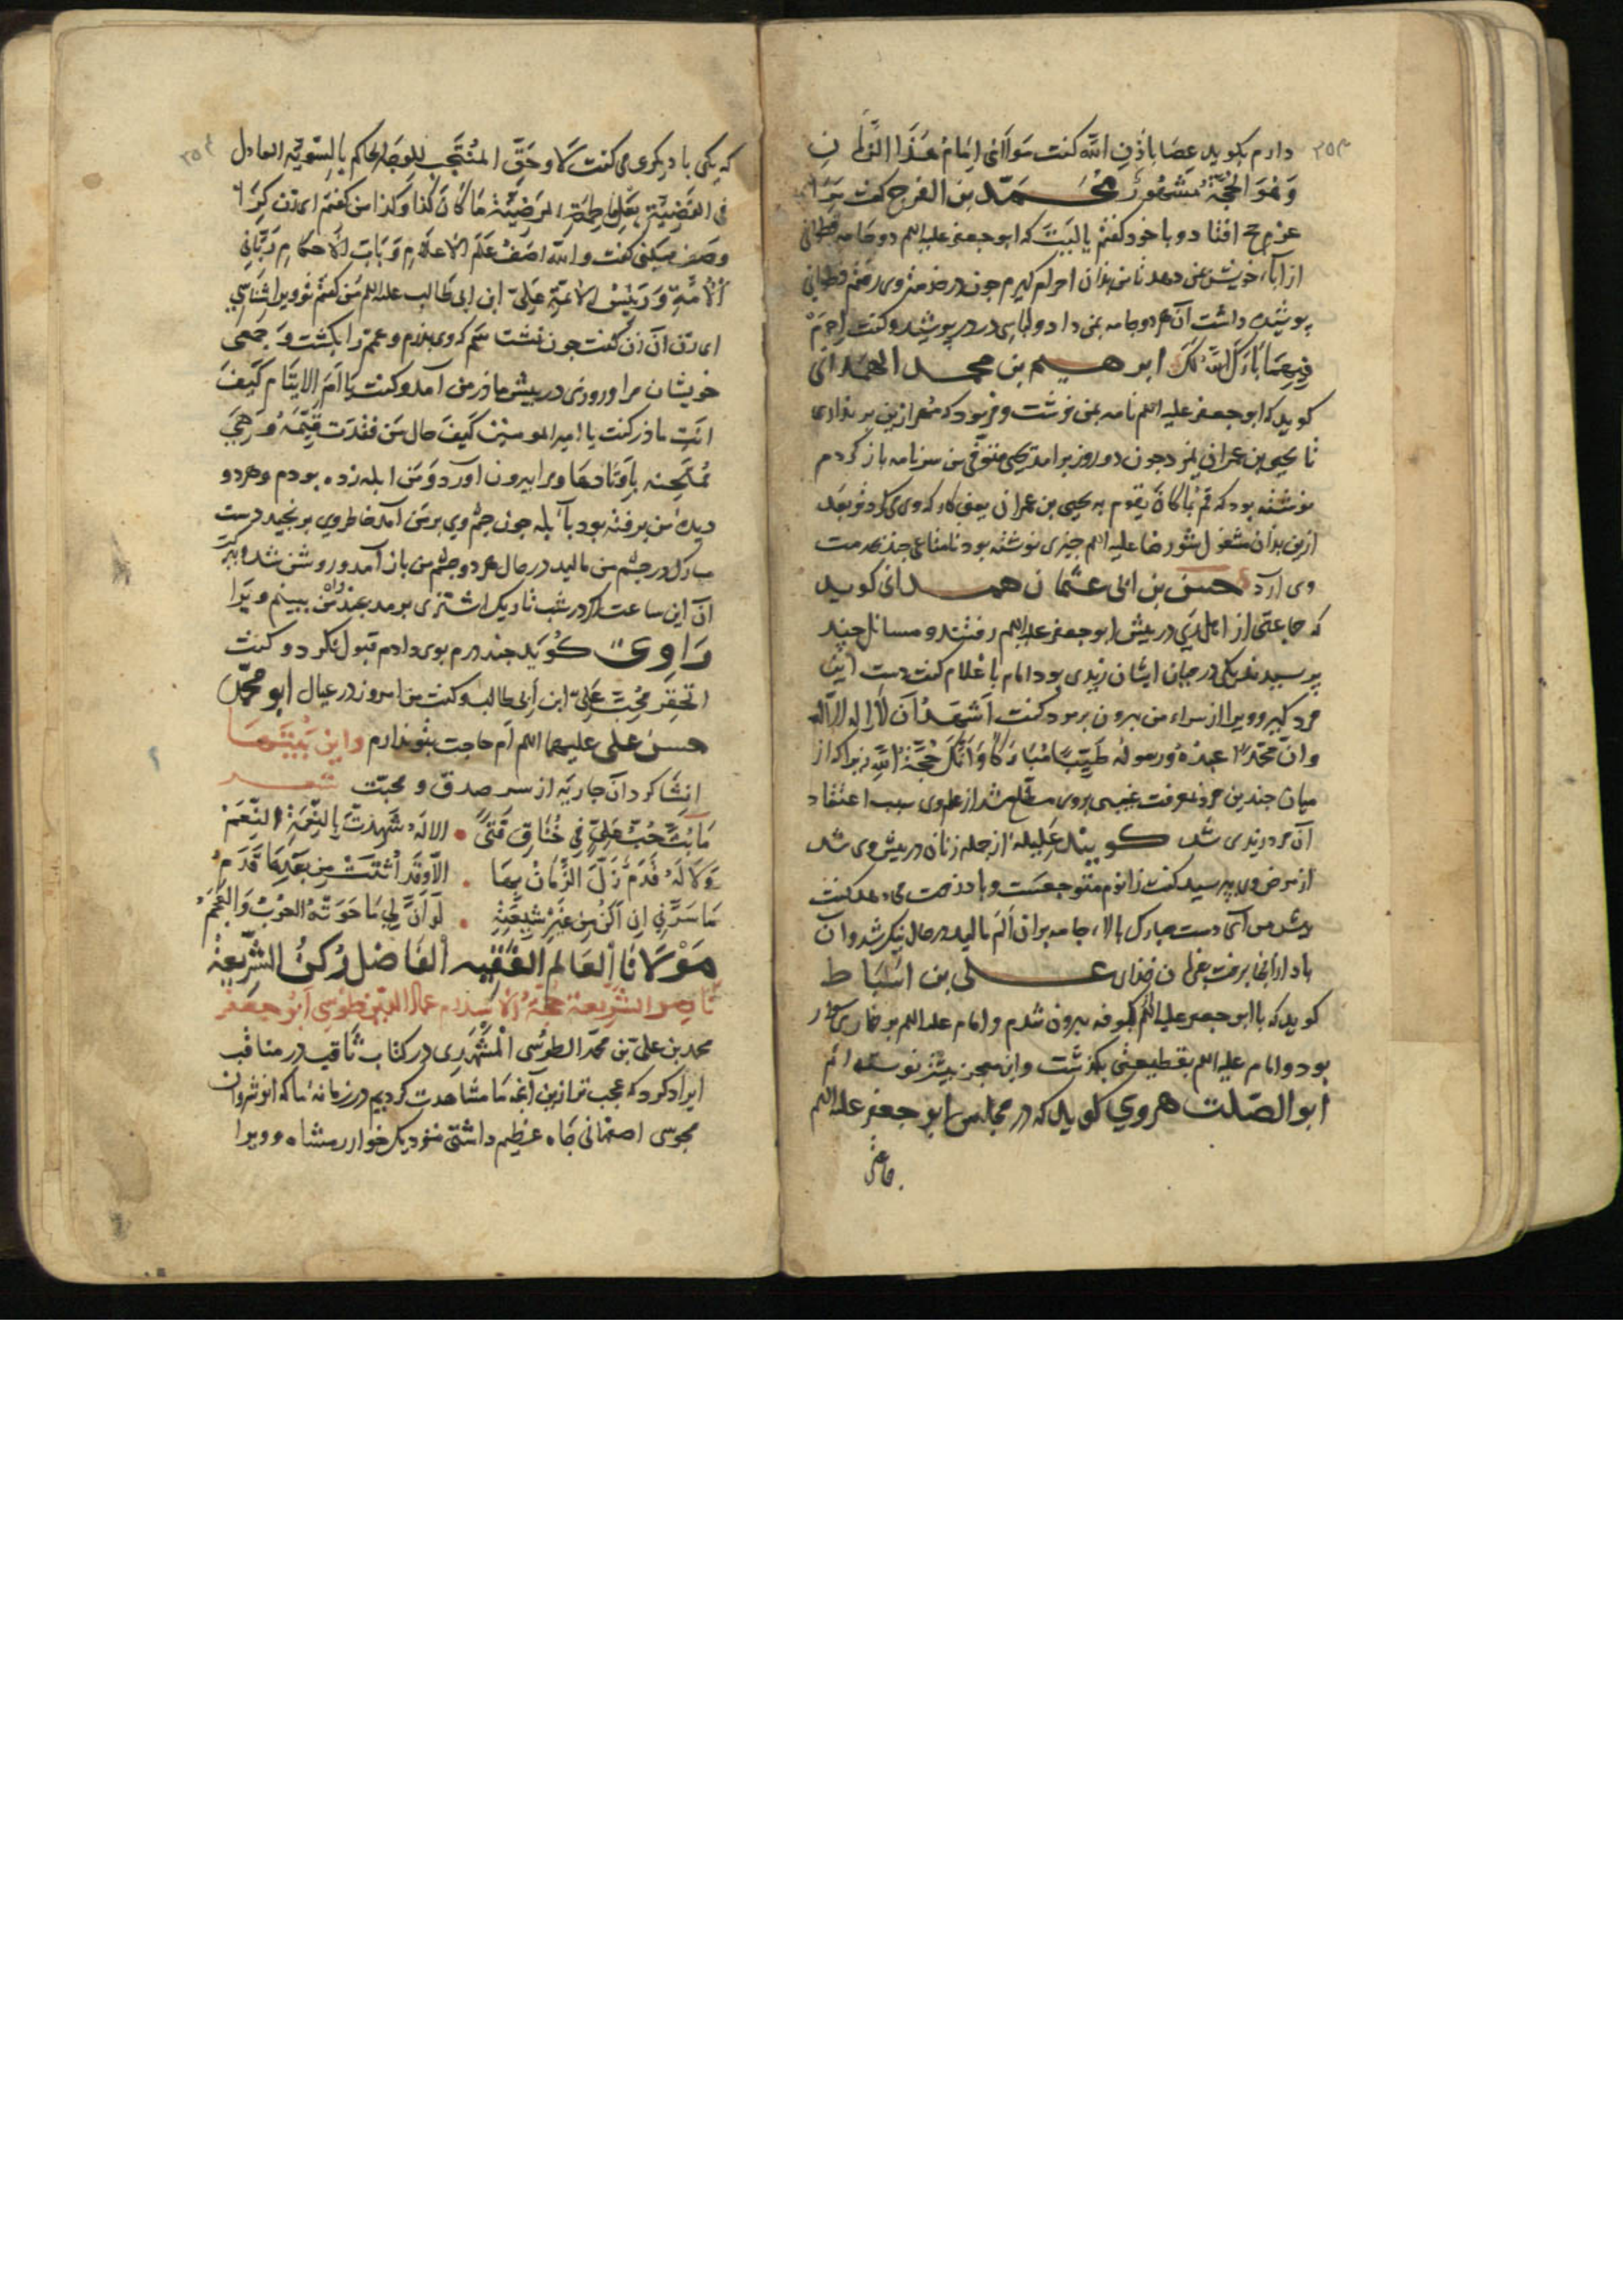 ٢٥٣
دارم بگوید عصا باذن الله گفت مولائی امام هذا الزمان
وهو الحجة مشهور محمد بن الفرج گفت مرا
عزم حج افتاد و با خود گفتم یا لیت که ابو جعفر علیه السلم دو جامه قطوانی
از آباء خویش بمن دهد تا من بدان احرام گیرم چون در خدمت وی رفتم قطوانی
پوشیده داشت آن هر دو جامه بمن داد و لباسی دیگر در پوشید و گفت احرم
فیهما بارک الله لک ابرهیم بن محمد الهمدانی
گوید که ابو جعفر علیه السلم نامه بمن نوشت و فرمود که مهر ازین بر نداری
تا یحیی بن عمران بمرد چون دو روز برآمد یحیی متوفی من سر نامه باز کردم
نوشته بود که قم بما کان یقوم به یحیی بن عمران یعنی کار که وی می کرد تو بعد
ازین بدان مشغول شو رضا علیه السلم چیزی نوشته بود تا متاعی چند بخدمت
وی آرد حسن بن ابی عثمان همدانی گوید
که جماعتی از اهل ری در پیش ابو جعفر علیه السلم رفتند و مسائل چند
پرسیدند یکی در میان ایشان زیدی بود امام با غلام گفت دست این
مرد گیر و ویرا از سراء من بیرون بر مرد گفت اشهد ان لا اله الا الله
وان محمدا عبده ورسوله طیبا مبارکا وانک حجة الله زیرا که از
میان چندین مرد معرفت غیبی بر وی مطلع شد از علم وی سبب اعتقاد
آن مرد زیدی شد گویند علیله از جمله زنان در پیش وی شد
از مرض وی پرسید گفت زانوم متوجعست و باد زحمت می دهد گفت
پیش من آی دست مبارک بالاء جامه بران الم مالید در حال نیکو شد و آن
باد از انجا برفت بفرمان خدای علی بن اسباط
گوید که با ابو جعفر علیه السلم بکوفه بیرون شدم و امام علیه السلم بر حماری سوار
بود و امام علیه السلم بقطیعی بگذشت و این معجز بیشتر نوشته ام
ابو الصلت هروی گوید که در مجلس ابو جعفر علیه السلم
٢٥٤
که یکی با دیگری می گفت لا وحق المنتجب للوصیة الحاکم بالسویة العادل
فی القضیة بعل فاطمة المرضیة ما کان کذا وکذا من گفتم ای زن کرا
وصف میکنی گفت والله اصف علم الاعلام وباب الاحکام ربانی
الامة ورئیس الائمة علی ابن ابی طالب علیه السلم من گفتم تو ویرا شناسی
ای زن آن زن گفت چون نشناسم که وی پدرم و عمم را بکشت و جمعی
خویشان مرا و روزی در پیش ماذر من آمد و گفت یا ام الایتام کیف
انت ماذر گفت یا امیر المومنین کیف حال من فقدت قیمها
دیده من برفته بود بآبله چون چشم وی بر من آمد خاطر وی برنجید دست
مبارک در چشم من مالید در حال هر دو چشم من باز آمد و روشن شد
ان این ساعت اگر در شب تاریک اشتری برمد بچندین راه من ببینم ویرا
راوی گوید چند درم بوی دادم قبول نکرد و گفت
اتحقر محب علی ابن ابی طالب و گفت من امروز در عیال ابو محمد
حسن علی علیهما السلم ام حاجت بتو ندارم واین بیتها
انشا کرد آن جاریه از سر صدق و محبت شعر
ما بث حب علی فی خناق فتی • الا له شهدت بالنعمة النعم
ولا له قدم زل الزمان بها • الا وقد اثبتت من بعدها قدم
ما سرنی ان اکن من غیر شیعته • لو ان لی ما حوته العرب والعجم
مولانا العالم الفقیه الفاضل رکن الشریعة
ناصر الشریعة حجة الاسلام عماد الدین طوسی ابو جعفر
محمد بن علی بن محمد الطوسی المشهدی در کتاب ثاقب در مناقب
ایراد کرد که عجب تر ازین آنچه ما مشاهدت کردیم در زمانه ما که انوشروان
مجوسی اصفهانی جاه عظیم داشتی بنزدیک خوارزمشاه و ویرا